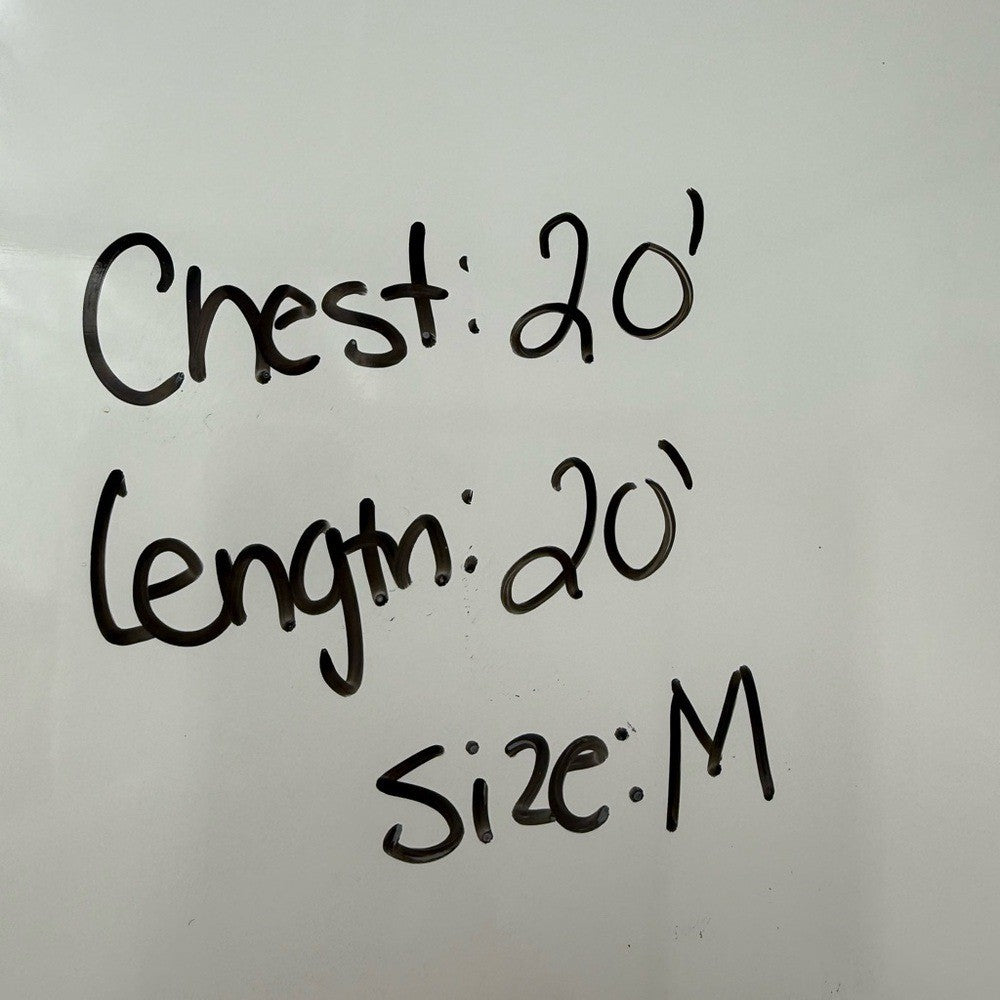 Chest: 20'
Length: 20'
Size: M